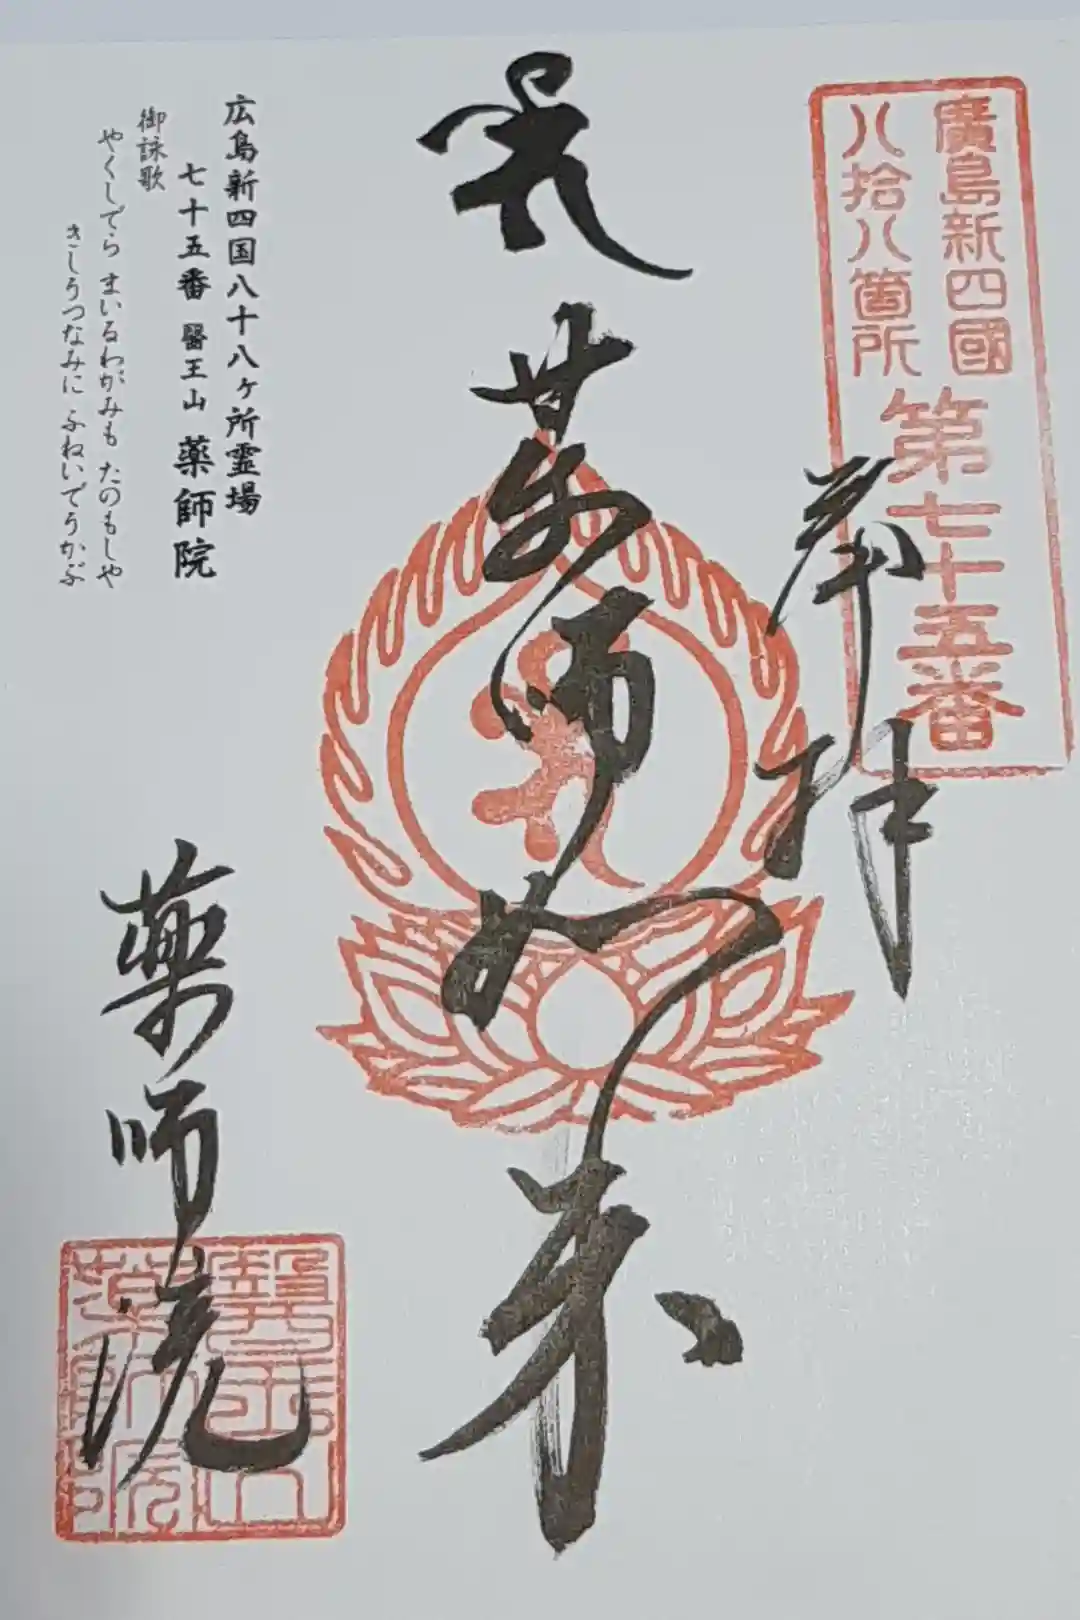 廣島新四國
八拾八箇所
第七十五番
奉拝
薬師如来
広島新四国八十八ヶ所霊場
七十五番 醫王山 薬師院
御詠歌
やくしでら まいるわがみも たのもしや
きしうつなみに ふねいでうかぶ
藥師院
醫王山
藥師院